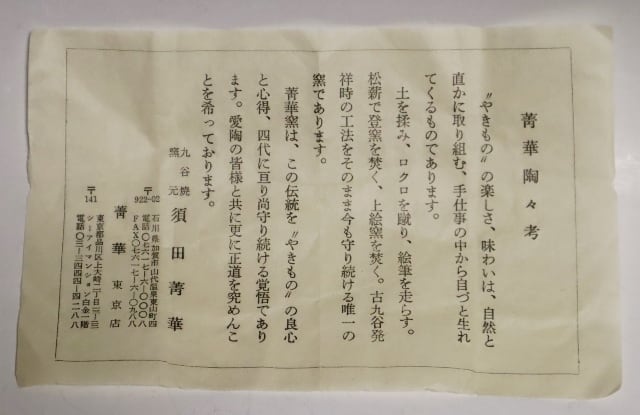 菁華陶々考
〝やきもの〟の楽しさ、味わいは、自然と
直かに取り組む、手仕事の中から自づと生れ
てくるものであります。
土を揉み、ロクロを蹴り、絵筆を走らす。
松薪で登窯を焚く、上絵窯を焚く。古九谷発
祥時の工法をそのまま今も守り続ける唯一の
窯であります。
菁華窯は、この伝統を〝やきもの〟の良心
と心得、四代に亘り尚守り続ける覚悟であり
ます。愛陶の皆様と共に更に正道を究めんこ
とを希っております。
九谷焼
窯元
須田菁華
〒922-02
石川県加賀市山代温泉東山町四
電話〇七六一七-六-〇〇〇八
FAX〇七六一七-六-〇九八八
菁華 東京店
〒141
東京都品川区上大崎二丁目三-三
シーアイマンション白金一階
電話〇三-三四四四-四一八八